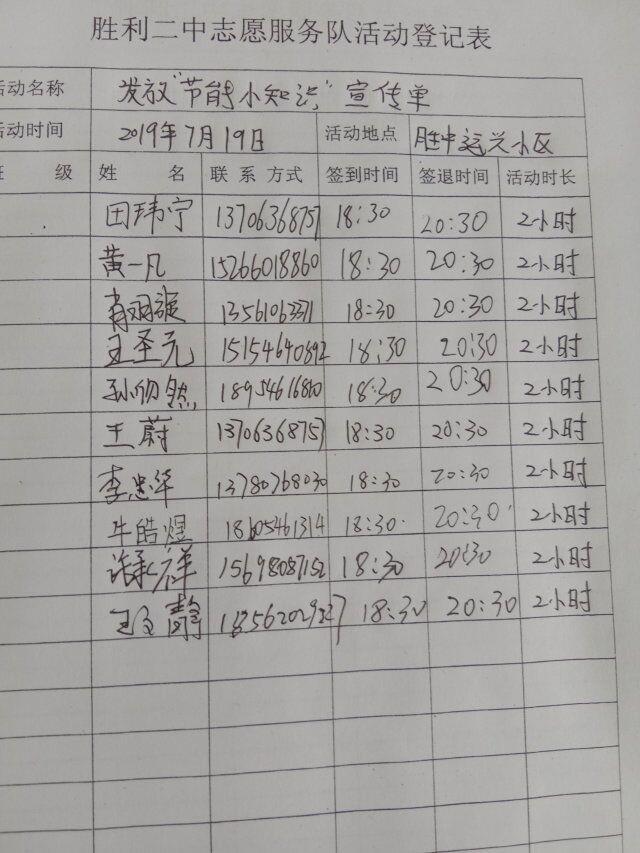 胜利二中志愿服务队活动登记表
活动名称 发放"节能小知识"宣传单
活动时间 2019年7月19日 活动地点 胜中运兴小区
班 级 姓 名 联系方式 签到时间 签退时间 活动时长
田玮宁 13706368757 18:30 20:30 2小时
黄一凡 15266018860 18:30 20:30 2小时
13561063371 18:30 20:30 2小时
王圣元 15154640892 18:30 20:30 2小时
18954616810 18:30 20:30 2小时
王蔚 13706368757 18:30 20:30 2小时
李忠华 13780768030 18:30 20:30 2小时
牛皓煜 18605461314 18:30 20:30 2小时
15698087152 18:30 20:30 2小时
18:30 20:30 2小时